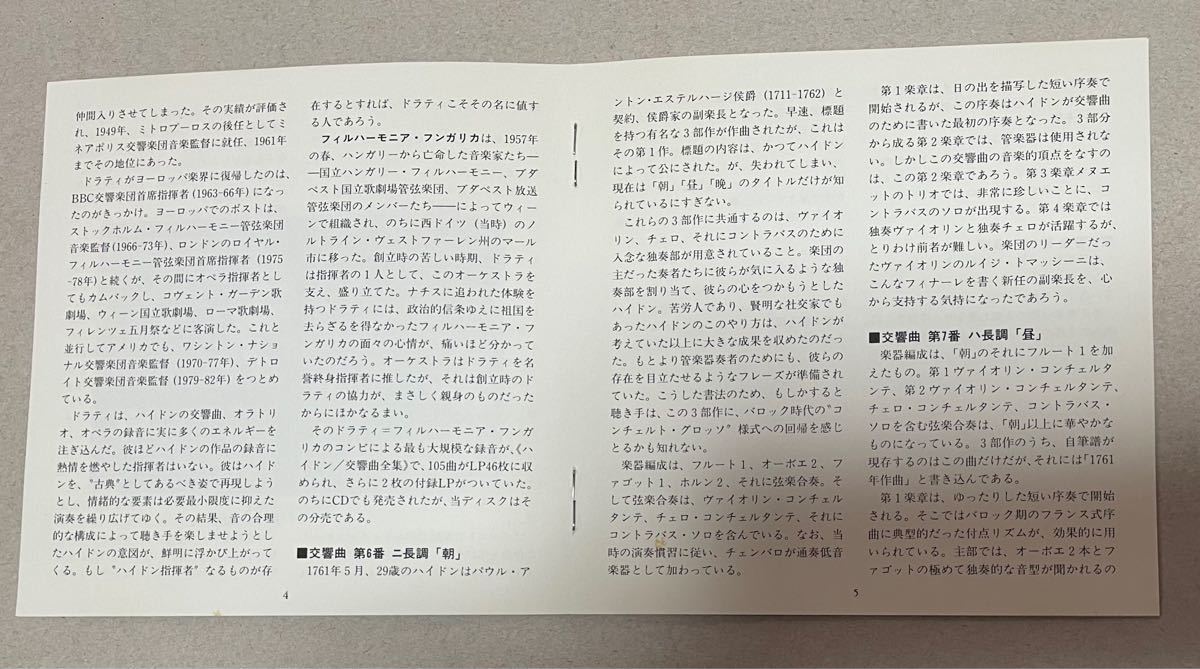 仲間入りさせてしまった。その実績が評価さ
れ、1949年、ミトロプーロスの後任としてミ
ネアポリス交響楽団音楽監督に就任、1961年
までその地位にあった。
ドラティがヨーロッパ楽界に復帰したのは、
BBC交響楽団首席指揮者(1963-66年)になっ
たのがきっかけ。ヨーロッパでのポストは、
ストックホルム・フィルハーモニー管弦楽団
音楽監督(1966-73年)、ロンドンのロイヤル・
フィルハーモニー管弦楽団首席指揮者(1975
-78年)と続くが、その間にオペラ指揮者とし
てもカムバックし、コヴェント・ガーデン歌
劇場、ウィーン国立歌劇場、ローマ歌劇場、
フィレンツェ五月祭などに客演した。これと
並行してアメリカでも、ワシントン・ナショ
ナル交響楽団音楽監督(1970-77年)、デトロ
イト交響楽団音楽監督(1979-82年)をつとめ
ている。
ドラティは、ハイドンの交響曲、オラトリ
オ、オペラの録音に実に多くのエネルギーを
注ぎ込んだ。彼ほどハイドンの作品の録音に
熱情を燃やした指揮者はいない。彼はハイド
ンを、“古典”としてあるべき姿で再現しよう
とし、情緒的な要素は必要最小限度に抑えた
演奏を繰り広げてゆく。その結果、音の合理
的な構成によって聴き手を楽しませようとし
たハイドンの意図が、鮮明に浮かび上がって
くる。もし“ハイドン指揮者”なるものが存
在するとすれば、ドラティこそその名に値す
る人であろう。
フィルハーモニア・フンガリカは、1957年
の春、ハンガリーから亡命した音楽家たち―
―国立ハンガリー・フィルハーモニー、ブダ
ペスト国立歌劇場管弦楽団、ブダペスト放送
管弦楽団のメンバーたち――によってウィー
ンで組織され、のちに西ドイツ(当時)のノ
ルトライン・ヴェストファーレン州のマール
市に移った。創立時の苦しい時期、ドラティ
は指揮者の1人として、このオーケストラを
支え、盛り立てた。ナチスに追われた体験を
持つドラティには、政治的信条ゆえに祖国を
去らざるを得なかったフィルハーモニア・フ
ンガリカの面々の心情が、痛いほど分かって
いたのだろう。オーケストラはドラティを名
誉終身指揮者に推したが、それは創立時のド
ラティの協力が、まさしく親身のものだった
からにほかなるまい。
そのドラティ=フィルハーモニア・フンガ
リカのコンビによる最も大規模な録音が、《ハ
イドン/交響曲全集》で、105曲がLP46枚に収
められ、さらに2枚の付録LPがついていた。
のちにCDでも発売されたが、当ディスクはそ
の分売である。
■交響曲 第6番 ニ長調「朝」
1761年5月、29歳のハイドンはパウル・ア
4
ントン・エステルハージ侯爵(1711-1762)と
契約、侯爵家の副楽長となった。早速、標題
を持つ有名な3部作が作曲されたが、これは
その第1作。標題の内容は、かつてハイドン
によって公にされた。が、失われてしまい、
現在は「朝」「昼」「晩」のタイトルだけが知
られているにすぎない。
これらの3部作に共通するのは、ヴァイオ
リン、チェロ、それにコントラバスのために
入念な独奏部が用意されていること。楽団の
主だった奏者たちに彼らが気に入るような独
奏部を割り当て、彼らの心をつかもうとした
ハイドン。苦労人であり、賢明な社交家でも
あったハイドンのこのやり方は、ハイドンが
考えていた以上に大きな成果を収めたのだっ
た。もとより管楽器奏者のためにも、彼らの
存在を目立たせるようなフレーズが準備され
ていた。こうした書法のため、もしかすると
聴き手は、この3部作に、バロック時代の“コ
ンチェルト・グロッソ”様式への回帰を感じ
とるかも知れない。
楽器編成は、フルート1、オーボエ2、フ
ァゴット1、ホルン2、それに弦楽合奏。そ
して弦楽合奏は、ヴァイオリン・コンチェル
タンテ、チェロ・コンチェルタンテ、それに
コントラバス・ソロを含んでいる。なお、当
時の演奏慣習に従い、チェンバロが通奏低音
楽器として加わっている。
第1楽章は、日の出を描写した短い序奏で
開始されるが、この序奏はハイドンが交響曲
のために書いた最初の序奏となった。3部分
から成る第2楽章では、管楽器は使用されな
い。しかしこの交響曲の音楽的頂点をなすの
は、この第2楽章であろう。第3楽章メヌエ
ットのトリオでは、非常に珍しいことに、コ
ントラバスのソロが出現する。第4楽章では
独奏ヴァイオリンと独奏チェロが活躍するが、
とりわけ前者が難しい。楽団のリーダーだっ
たヴァイオリンのルイジ・トマッシーニは、
こんなフィナーレを書く新任の副楽長を、心
から支持する気持になったであろう。
■交響曲 第7番 ハ長調「昼」
楽器編成は、「朝」のそれにフルート1を加
えたもの。第1ヴァイオリン・コンチェルタ
ンテ、第2ヴァイオリン・コンチェルタンテ、
チェロ・コンチェルタンテ、コントラバス・
ソロを含む弦楽合奏は、「朝」以上に華やかな
ものになっている。3部作のうち、自筆譜が
現存するのはこの曲だけだが、それには「1761
年作曲」と書き込んである。
第1楽章は、ゆったりした短い序奏で開始
される。そこではバロック期のフランス式序
曲に典型的だった付点リズムが、効果的に用
いられている。主部では、オーボエ2本とフ
ァゴットの極めて独奏的な音型が聞かれるの
5